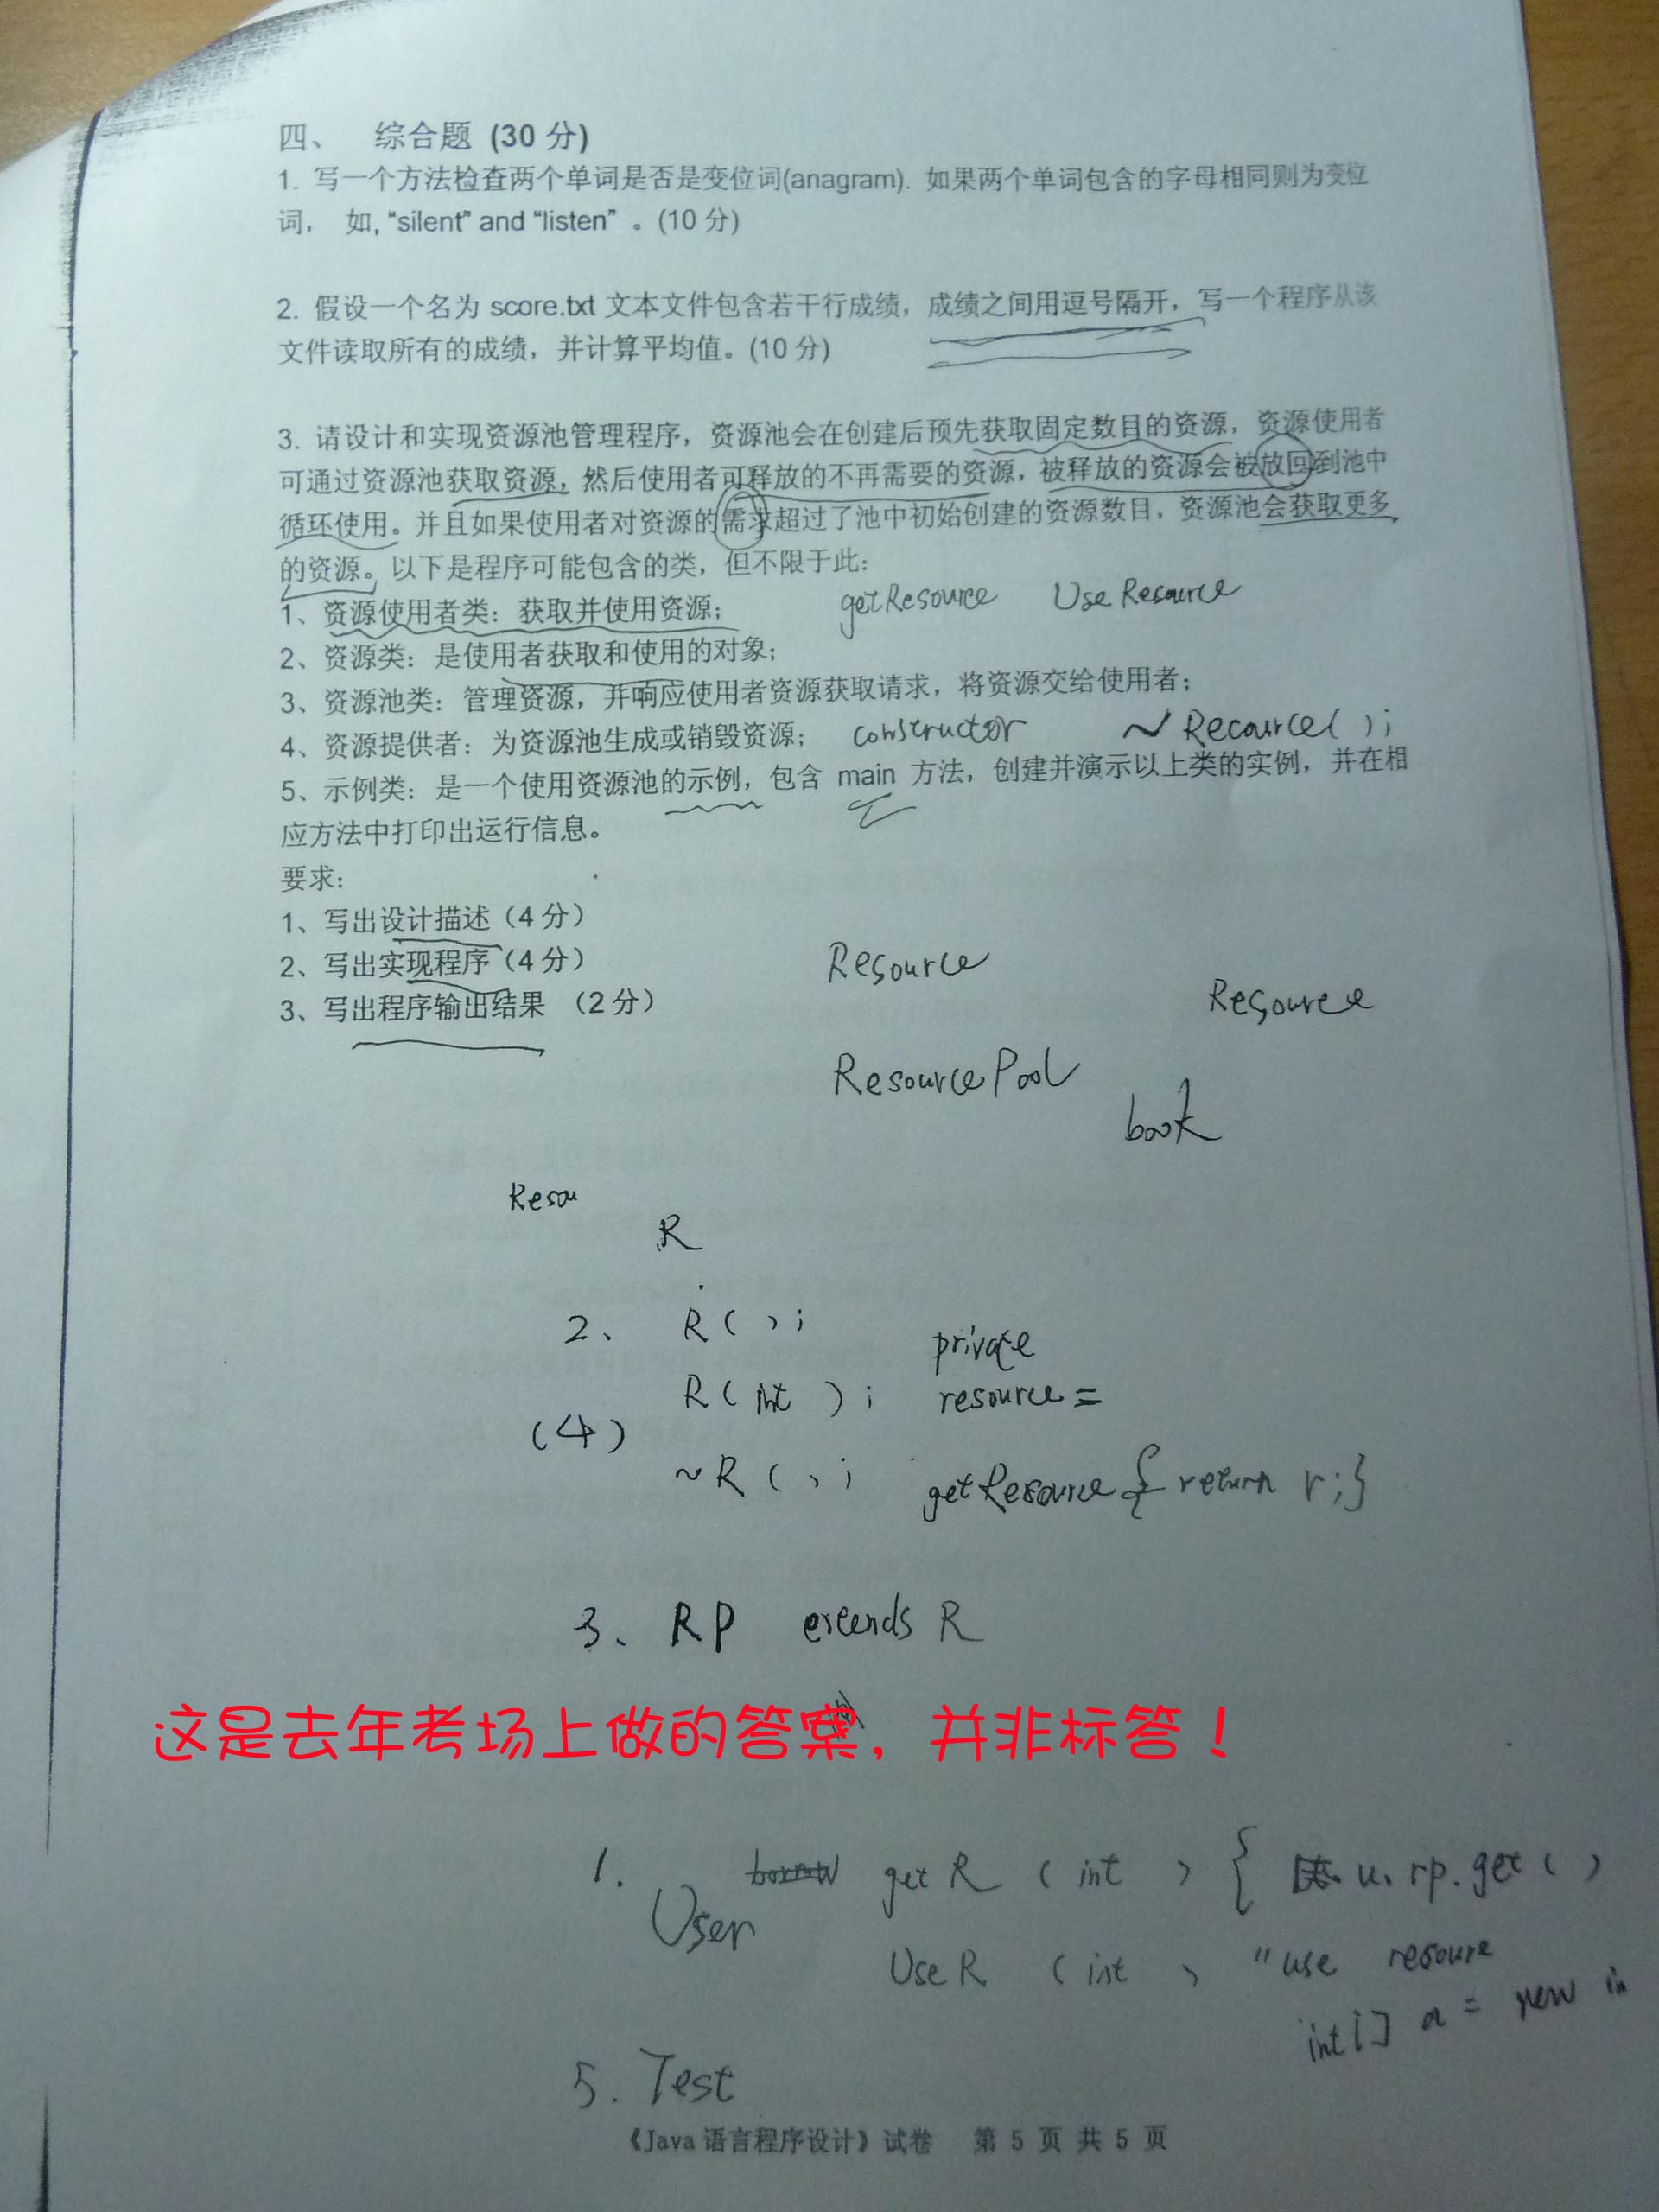 四、 综合题 (30 分)
1. 写一个方法检查两个单词是否是变位词(anagram). 如果两个单词包含的字母相同则为变位
词， 如, “silent” and “listen” 。(10 分)
2. 假设一个名为 score.txt 文本文件包含若干行成绩，成绩之间用逗号隔开，写一个程序从该
文件读取所有的成绩，并计算平均值。(10 分)
3. 请设计和实现资源池管理程序，资源池会在创建后预先获取固定数目的资源，资源使用者
可通过资源池获取资源，然后使用者可释放的不再需要的资源，被释放的资源会被放回到池中
循环使用。并且如果使用者对资源的需求超过了池中初始创建的资源数目，资源池会获取更多
的资源。以下是程序可能包含的类，但不限于此：
1、资源使用者类：获取并使用资源； getResource Use Resource
2、资源类：是使用者获取和使用的对象；
3、资源池类：管理资源，并响应使用者资源获取请求，将资源交给使用者；
4、资源提供者：为资源池生成或销毁资源； constructor ~ Recource( );
5、示例类：是一个使用资源池的示例，包含 main 方法，创建并演示以上类的实例，并在相
应方法中打印出运行信息。
要求：
1、写出设计描述（4 分）
2、写出实现程序（4 分）
3、写出程序输出结果 （2 分）
Resource
Resource
ResourcePool
book
Resou
R
2、 R ( ) ;
private
R ( int ) ; resource =
(4)
~ R ( ) ; getResource { return r ; }
3、 RP extends R
这是去年考场上做的答案，并非标答！
1. User getR ( int ) { u. rp. get ( )
Use R ( int ) "use resoure
int [] a = new in
5. Test
《Java 语言程序设计》试卷 第 5 页 共 5 页